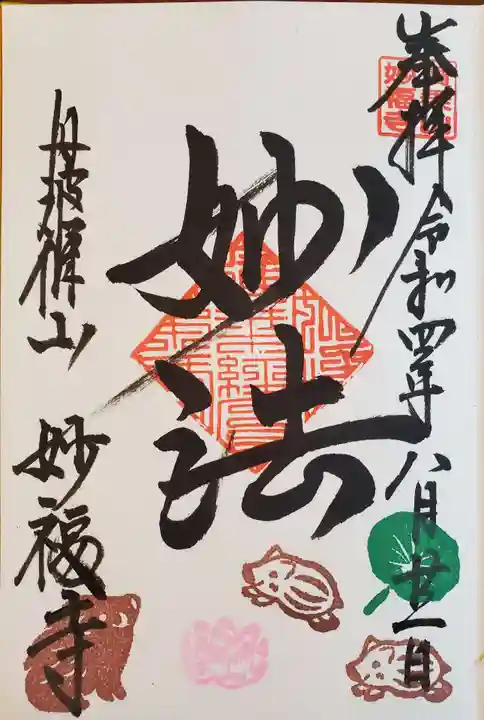 奉拝 令和四年八月廿一日
妙法
丹波 山 妙福寺